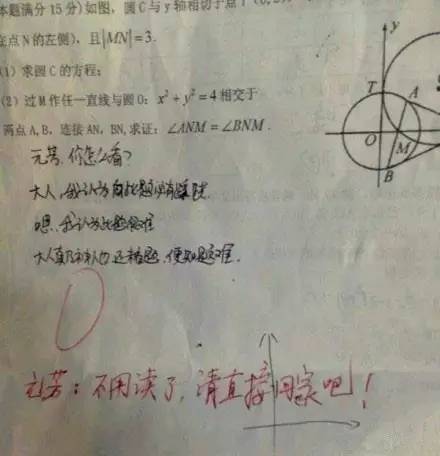 本题满分15分)如图，圆C与y轴相切于点T(0,2)
在点N的左侧)，且|MN|=3.
(1) 求圆C的方程;
(2) 过M作任一直线与圆O: x²+y²=4相交于
两点A,B，连接AN，BN,求证: ∠ANM=∠BNM.
y
T
A
O
M
B
元芳，你怎么看?
大人，我认为此题
嗯，我认为此题很难
大人真乃神人也，还
元芳: 不用读了，请直接回家吧!